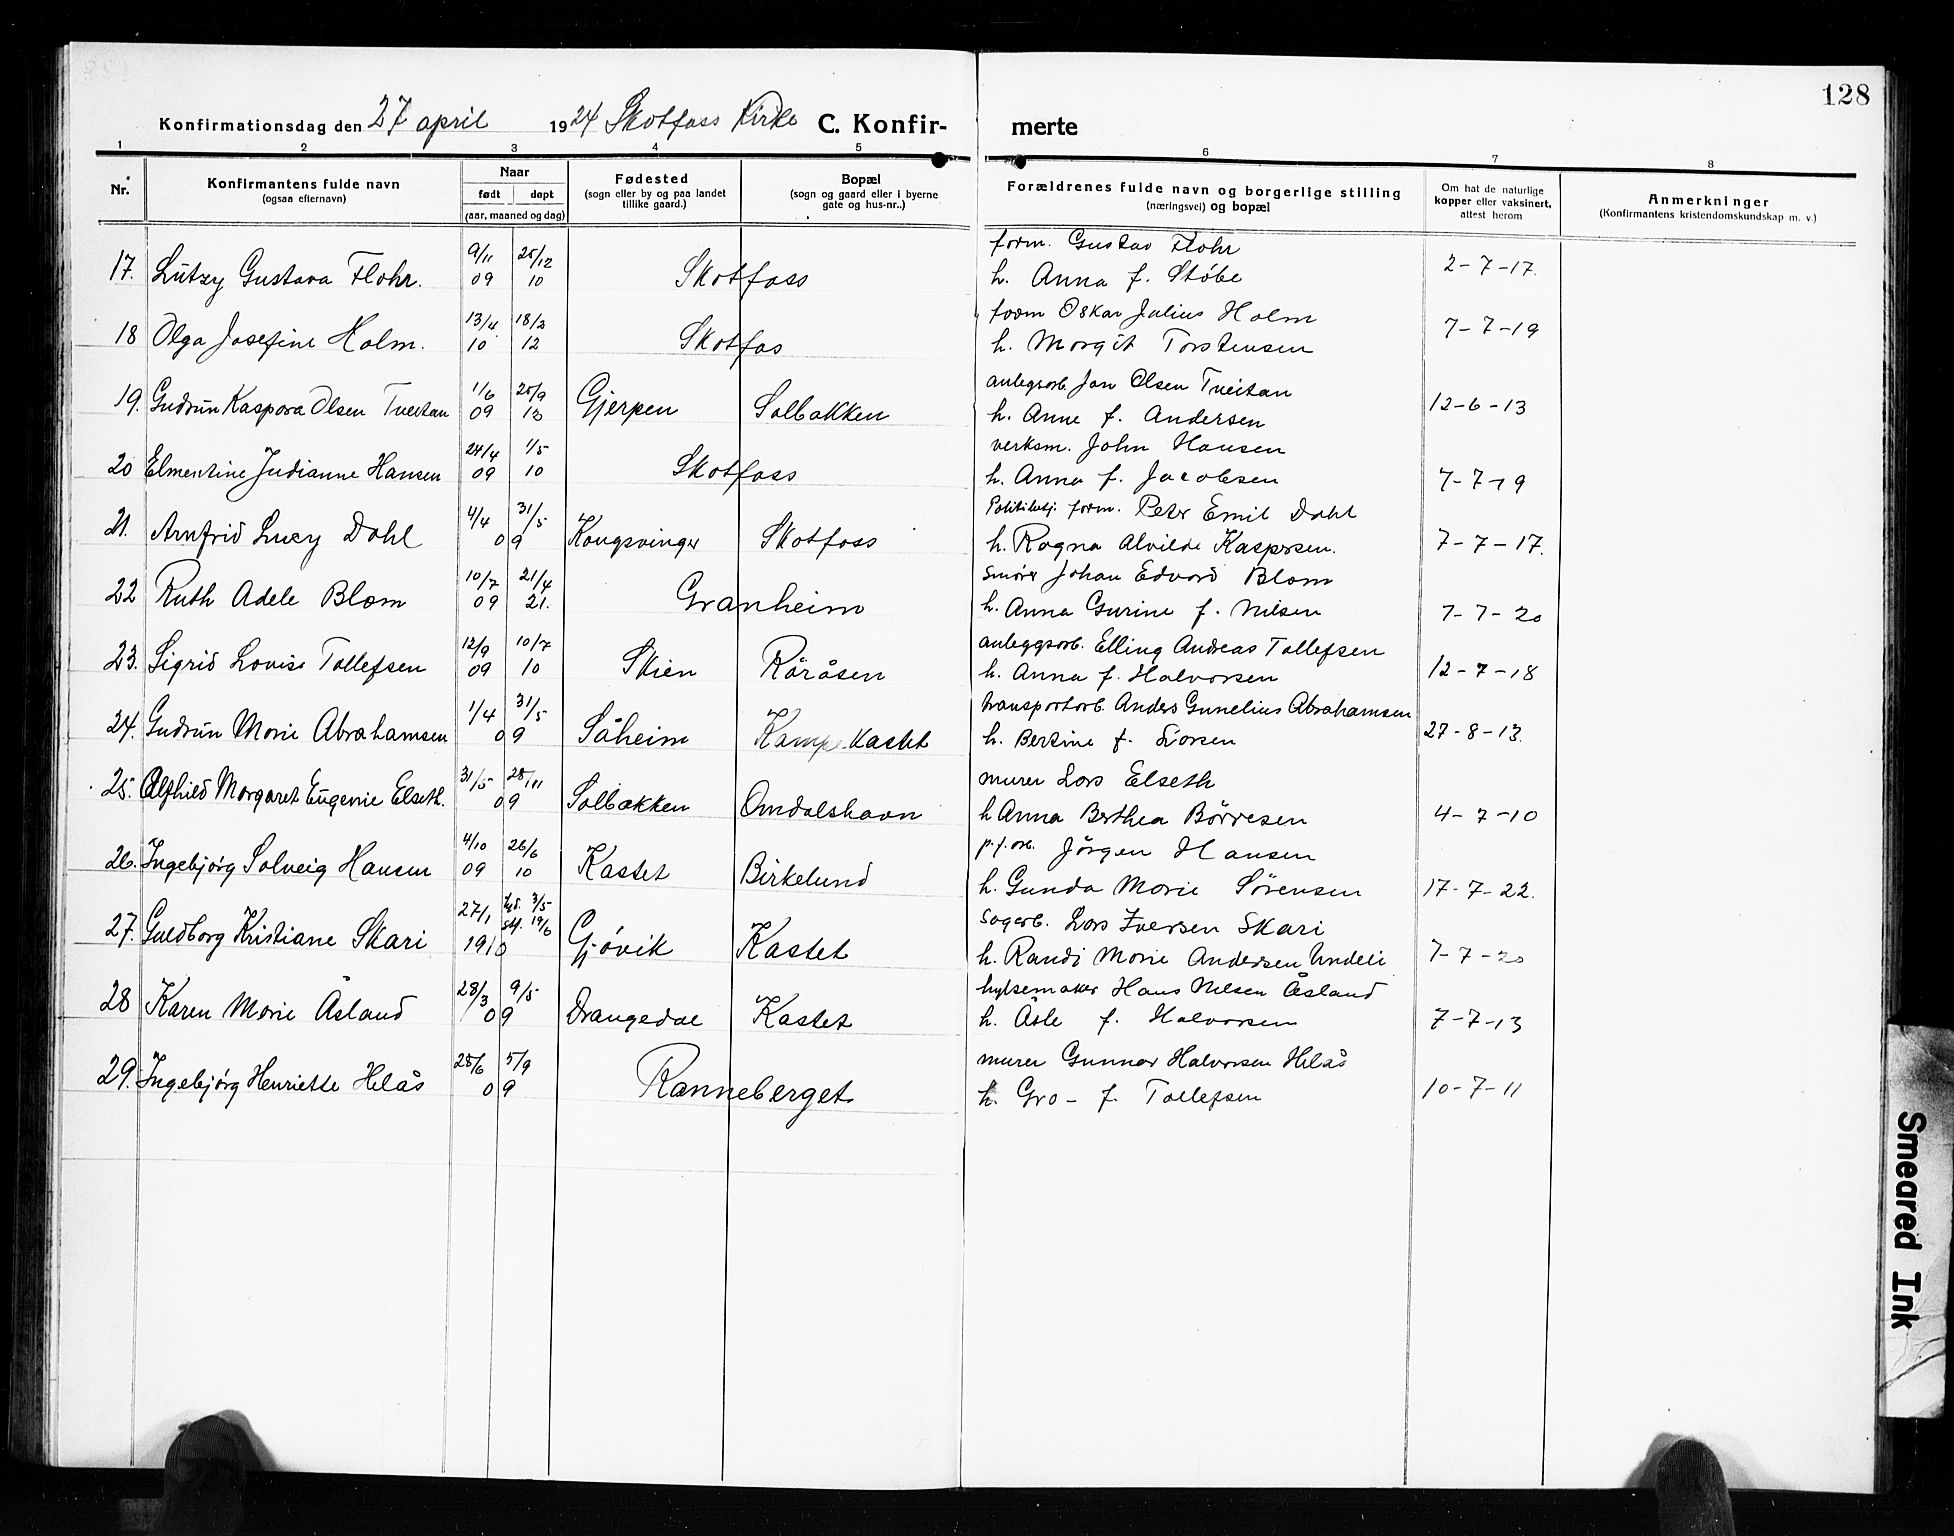 128
Konfirmationsdag den 27 april 1924 Skotfoss Kirke C. Konfir- merte
1 2 3 4 5 6 7 8
Nr.
Konfirmantens fulde navn
(ogsaa efternavn)
Naar
født døpt
(aar, maaned og dag)
Fødested
(sogn eller by og paa landet
tillike gaard.)
Bopæl
(sogn og gaard eller i byerne
gate og hus-nr..)
Forældrenes fulde navn og borgerlige stilling
(næringsvei) og bopæl
Om hat de naturlige
kopper eller vaksinert,
attest herom
Anmerkninger
(Konfirmantens kristendomskundskap m. v.)
9/11 25/12 form. Gustav Flohr
17. Lutzy Gustava Flohr. 09 10 Skotfoss h. Anna f. Støbe 2-7-17.
13/4 18/2 form Oskar Julius Holm
18 Olga Josefine Holm. 10 12 Skotfos h. Margit Torstensen 7-7-19
1/6 25/9 anlegsarb. Jan Olsen Tveitan
19. Gudrun Kaspara Olsen Tveitan 09 13 Gjerpen Solbakken h. Anne f. Andersen 12-6-13
24/4 1/5 verksm. John Hansen
20 Elmentine Judianne Hansen 09 10 Skotfoss h. Anna f. Jacobsen 7-7-19
4/4 31/5 form. Peter Emil Dahl
21. Arnfrid Lucy Dahl 09 Kongsvinger Skotfoss h. Ragna Alvilde Kaspersen. 7-7-17.
10/7 21/4 smører Johan Edvard Blom
22 Ruth Adele Blom 09 21. Granheim h. Anna Gurine f. Nilsen 7-7-20
12/9 10/7 anleggsarb. Elling Andreas Tollefsen
23. Sigrid Lovise Tollefsen 09 10 Skien Råråsen h. Anna f. Halvorsen 12-7-18
1/4 31/5 transportarb. Anders Gunelius Abrahamsen
24. Gudrun Marie Abrahamsen 09 Såheim Kamp. Kastet h. Bertine f. Larsen 27-8-13.
31/5 28/11 murer Lars Elseth
25. Alfhild Margaret Eugenie Elseth. 09 Solbakken Omdalshavn h Anna Berthea Børresen 4-7-10
4/10 26/6 p.f.arb. Jörgen Hansen
26. Ingebjørg Solveig Hansen 09 10 Kastet Birkelund h. Gunda Marie Sørensen 17-7-22.
27/1 hjd. 3/5 stf. 19/6 sagarb. Lars Iversen Skari
27. Guldborg Kristiane Skari 1910 Gjövik Kastet h. Randi Marie Andersen Undeli 7-7-20
28/3 9/5 hylsemaker Hans Nilsen Åsland
28 Karen Marie Åsland 09 Drangedal Kastet h. Åsle f. Halvorsen 7-7-13
25/6 5/9 murer Gunnar Halvorsen Helås
29. Ingebjørg Henriette Helås 09 Ranneberget h. Gro - f. Tollefsen 10-7-11
Smeared Ink